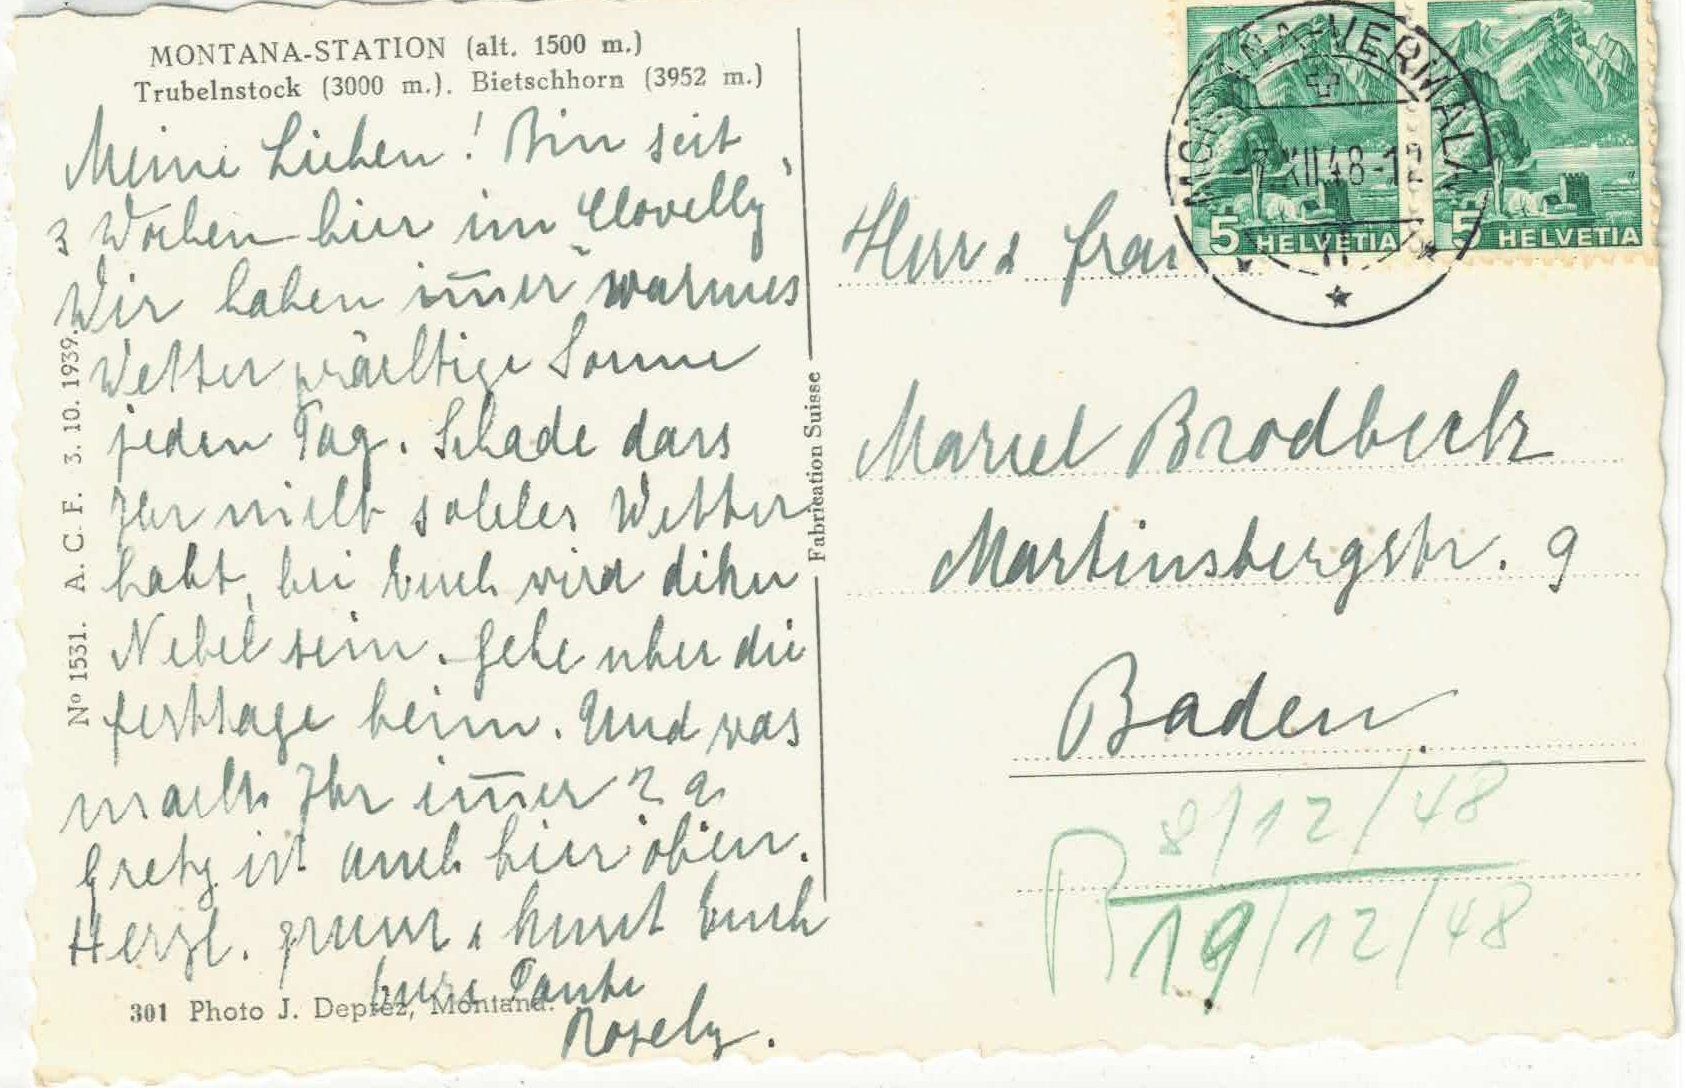 MONTANA-STATION (alt. 1500 m.)
Trubelnstock (3000 m.). Bietschhorn (3952 m.)
Meine Lieben! Bin seit
3 Wochen hier im "Clovelly"
Wir haben im̅er warmes
Wetter prächtige Sonne
jeden Tag. Schade dass
Ihr nicht solches Wetter
habt, bei Euch wird diker
Nebel sein. Gehe über die
Festtage heim. Und was
macht Ihr im̅er?
Gretz ist auch hier oben.
Herzl. grüsst & küsst Euch
Eure Tante
Rosely.
301 Photo J. Depréz, Montana.
Nº 1531. A. C. F. 3. 10. 1939.
Fabrication Suisse
MONTANA-VERMALA
7.XII.48-12
5 HELVETIA
5 HELVETIA
Herr & Frau
Marcel Brodbeck
Martinsbergstr. 9
Baden.
R 8/12/48
19/12/48